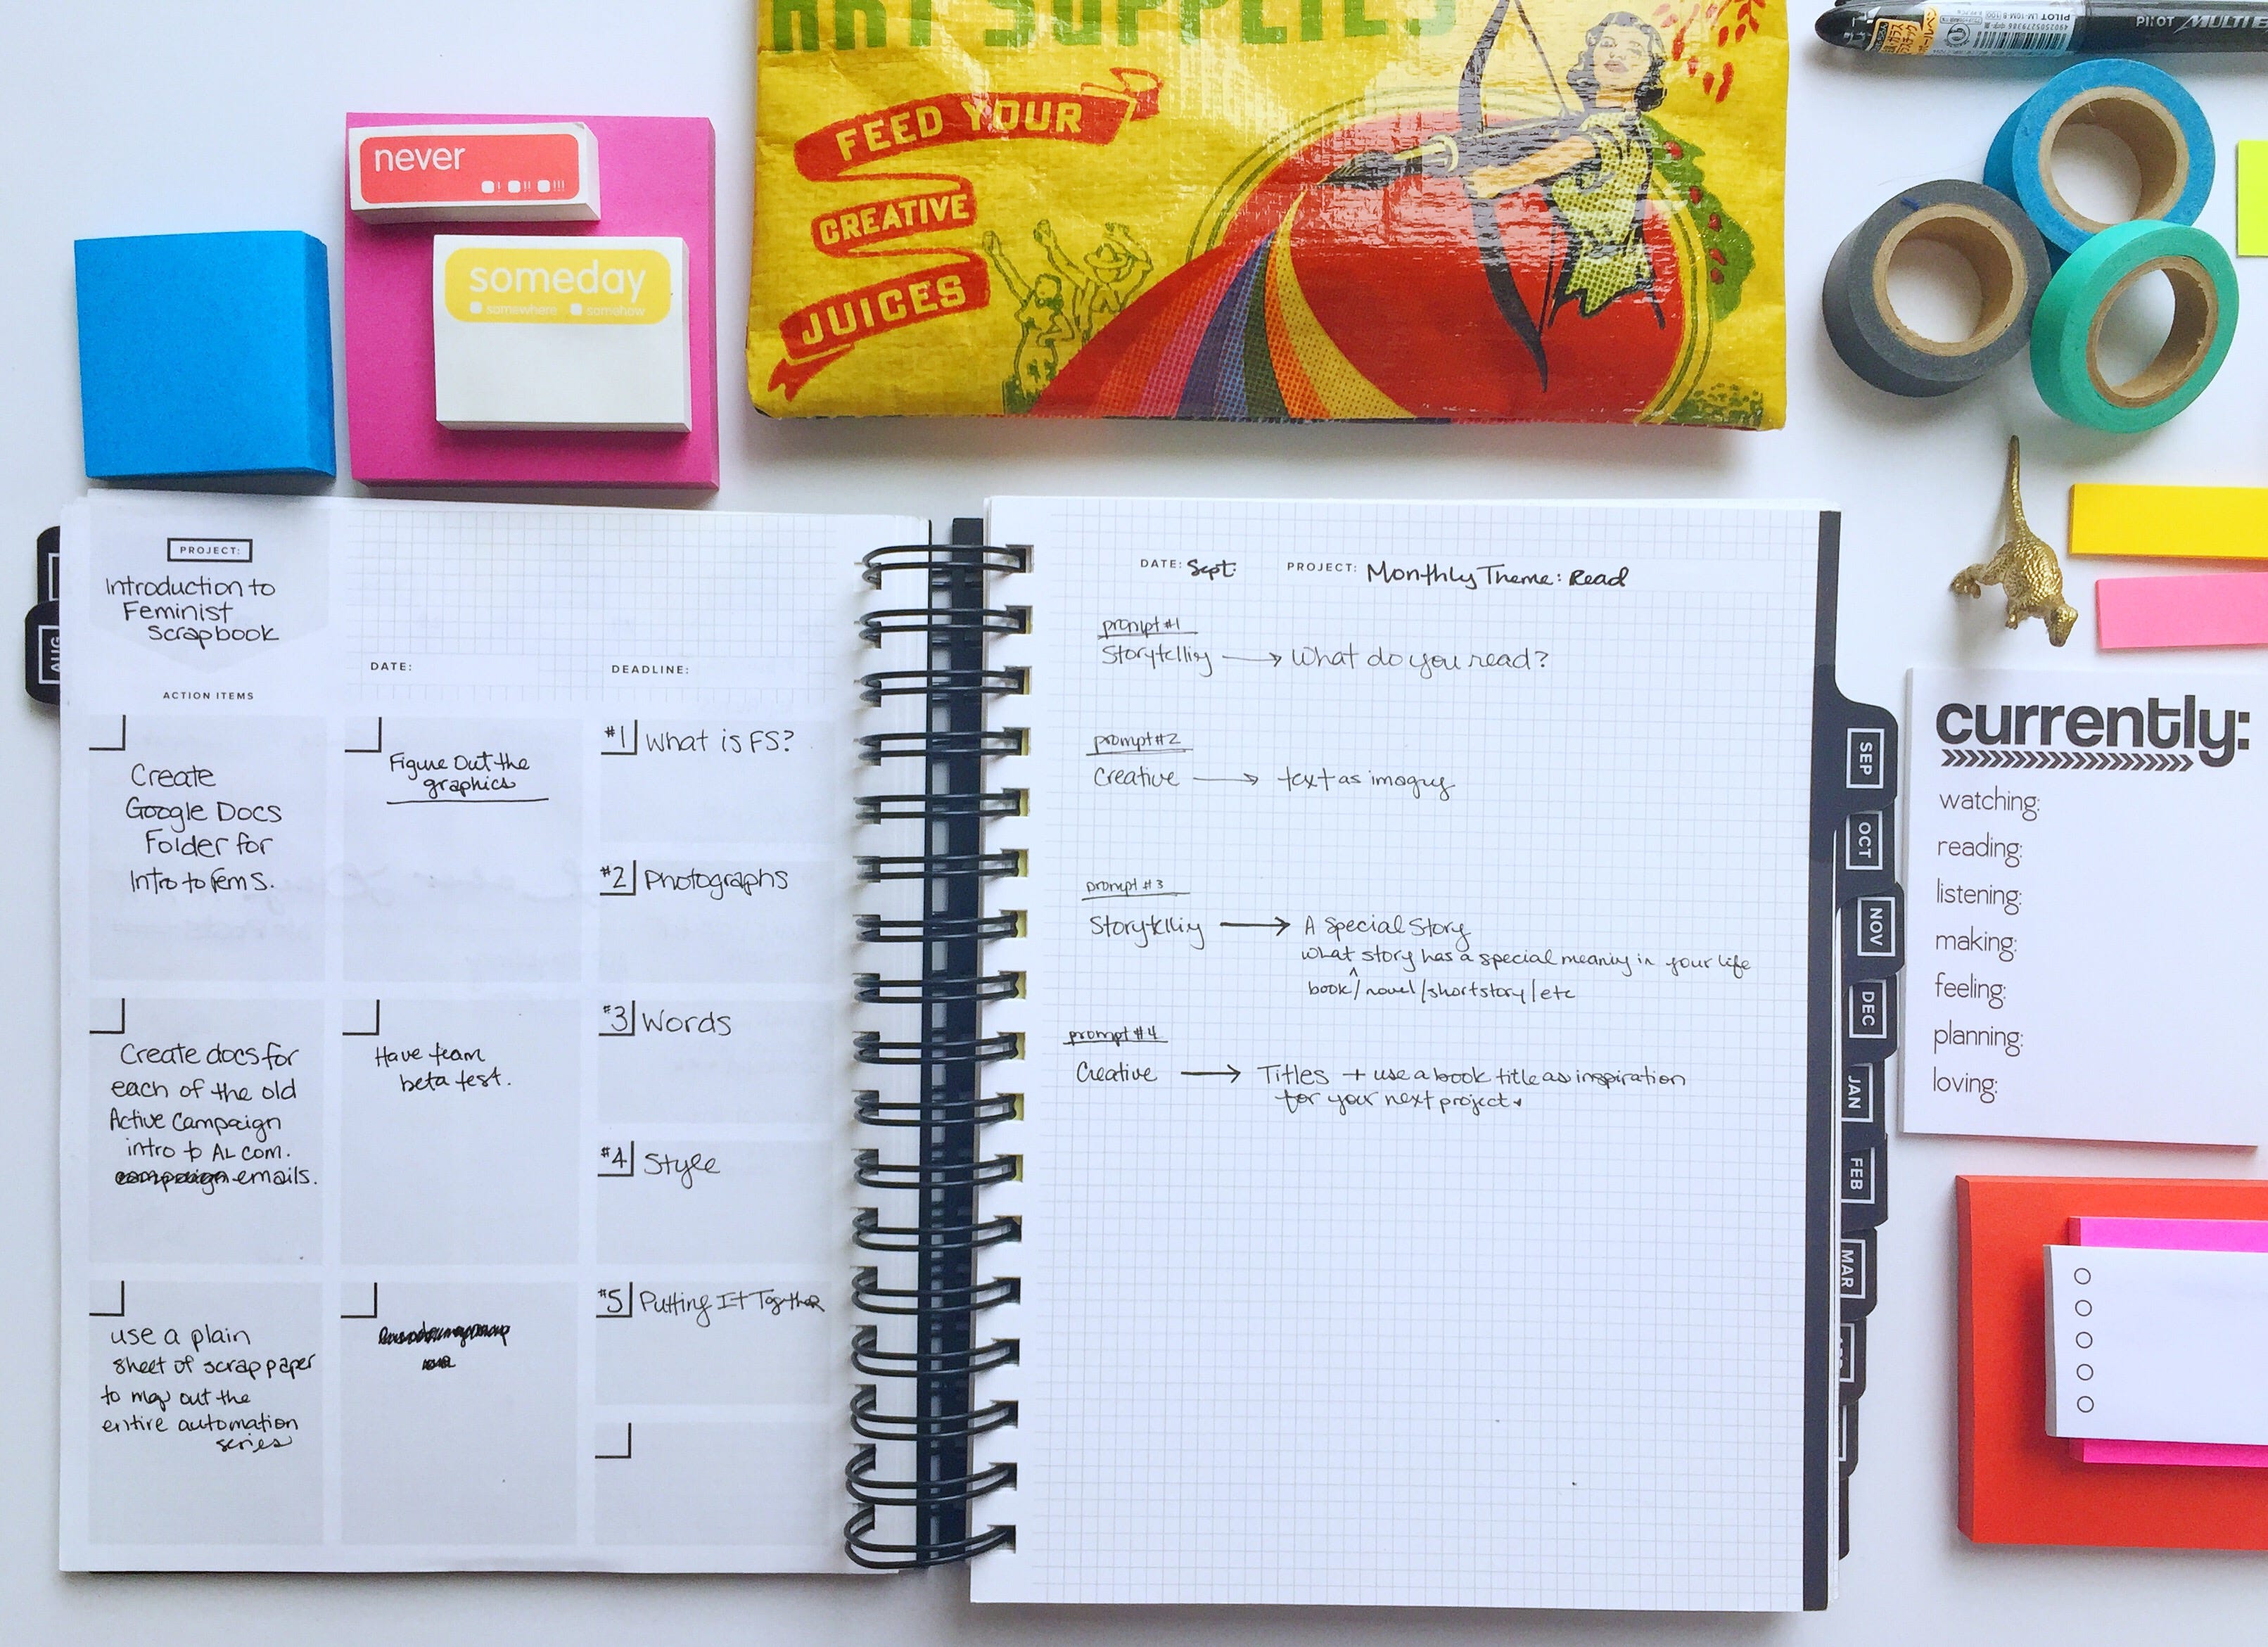 ART SUPPLIES
FEED YOUR
CREATIVE
JUICES
never
! !! !!!
someday
somewhere somehow
PILOT MULTI B
PILOT LM-10M-B (100)
4902505279386
PROJECT:
Introduction to
Feminist
Scrapbook
DATE:
DEADLINE:
ACTION ITEMS
Create
Google Docs
Folder for
Intro to Fem S.
Figure Out the
graphics
#1 What is FS?
#2 Photographs
#3 Words
#4 Style
#5 Putting It Together
Create docs for
each of the old
Active Campaign
intro to AL com.
campaign emails.
Have team
beta test.
use a plain
sheet of scrap paper
to map out the
entire automation
series
AUG
DATE: Sept. PROJECT: Monthly Theme: Read
prompt #1
Storytelling → What do you read?
prompt #2
Creative → text as imagery
prompt #3
Storytelling → A Special Story
what story has a special meaning in your life
^
book/novel/short story/etc
prompt #4
Creative → Titles + use a book title as inspiration
for your next project.
SEP
OCT
NOV
DEC
JAN
FEB
MAR
currently:
watching:
reading:
listening:
making:
feeling:
planning:
loving: